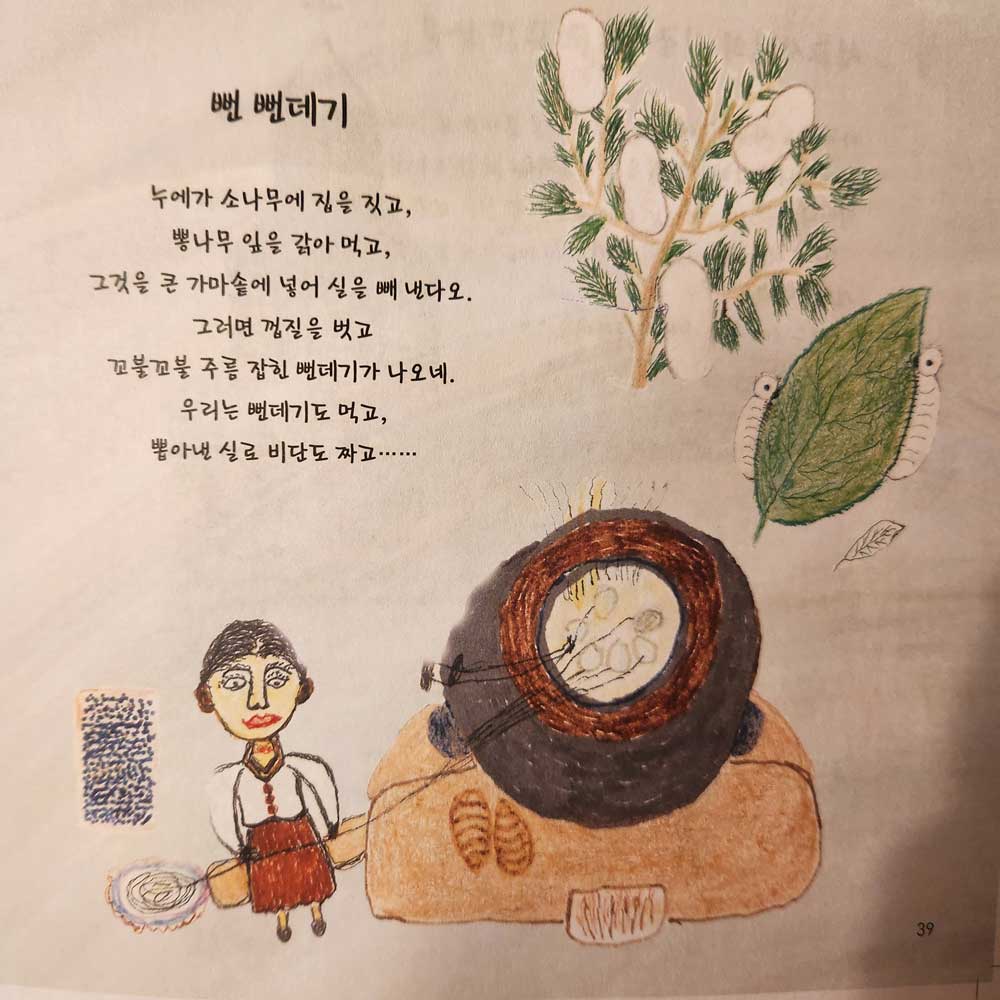 뻔 뻔데기
누에가 소나무에 집을 짓고,
뽕나무 잎을 갉아 먹고,
그것을 큰 가마솥에 넣어 실을 빼 낸다오.
그러면 껍질을 벗고
꼬불꼬불 주름 잡힌 뻔데기가 나오네.
우리는 뻔데기도 먹고,
뽑아낸 실로 비단도 짜고……
39